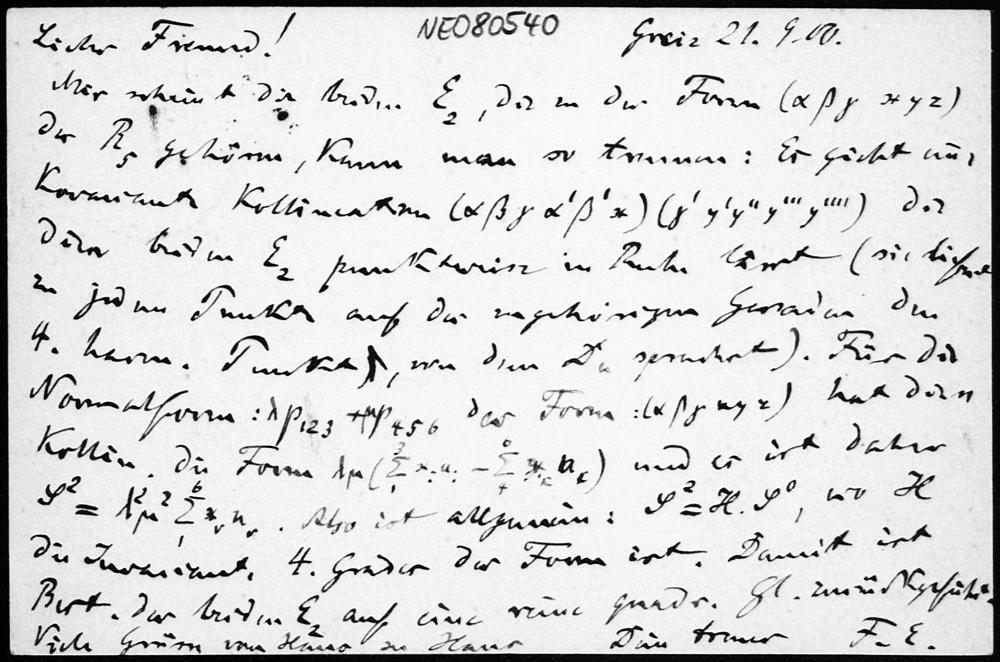 NE080540
Lieber Freund! Greiz 21. 9. 00.
Mir scheint die beiden E₂, die zu der Form (αβγ xyz)
der R₅ gehören, kann man so trennen: Es giebt eine
Kovariante Kollineation (αβγ α'β'x)(γ'y'y''y'''y'''') die
diese beiden E₂ punktweise in Ruhe lässt (sie liefert
zu jedem Punkte auf der zugehörigen Geraden den
4. harm. Punkt, von dem Du sprachst). Für die
Normalform: λp₁₂₃ + μp₄₅₆ der Form: (αβγ xyz) hat diese
Kollin. die Form λμ(Σ xᵢuᵢ − Σ xₖuₖ) und es ist daher
φ² = λ²μ² Σ xᵥuᵥ. Also ist allgemein: φ² = H.φ⁰, wo H
die Invariante 4. Grades der Form ist. Damit ist
Best. der beiden E₂ auf eine reine quadr. Gl. zurückgeführt.
Viele Grüsse von Haus zu Haus Dein treuer F. E.